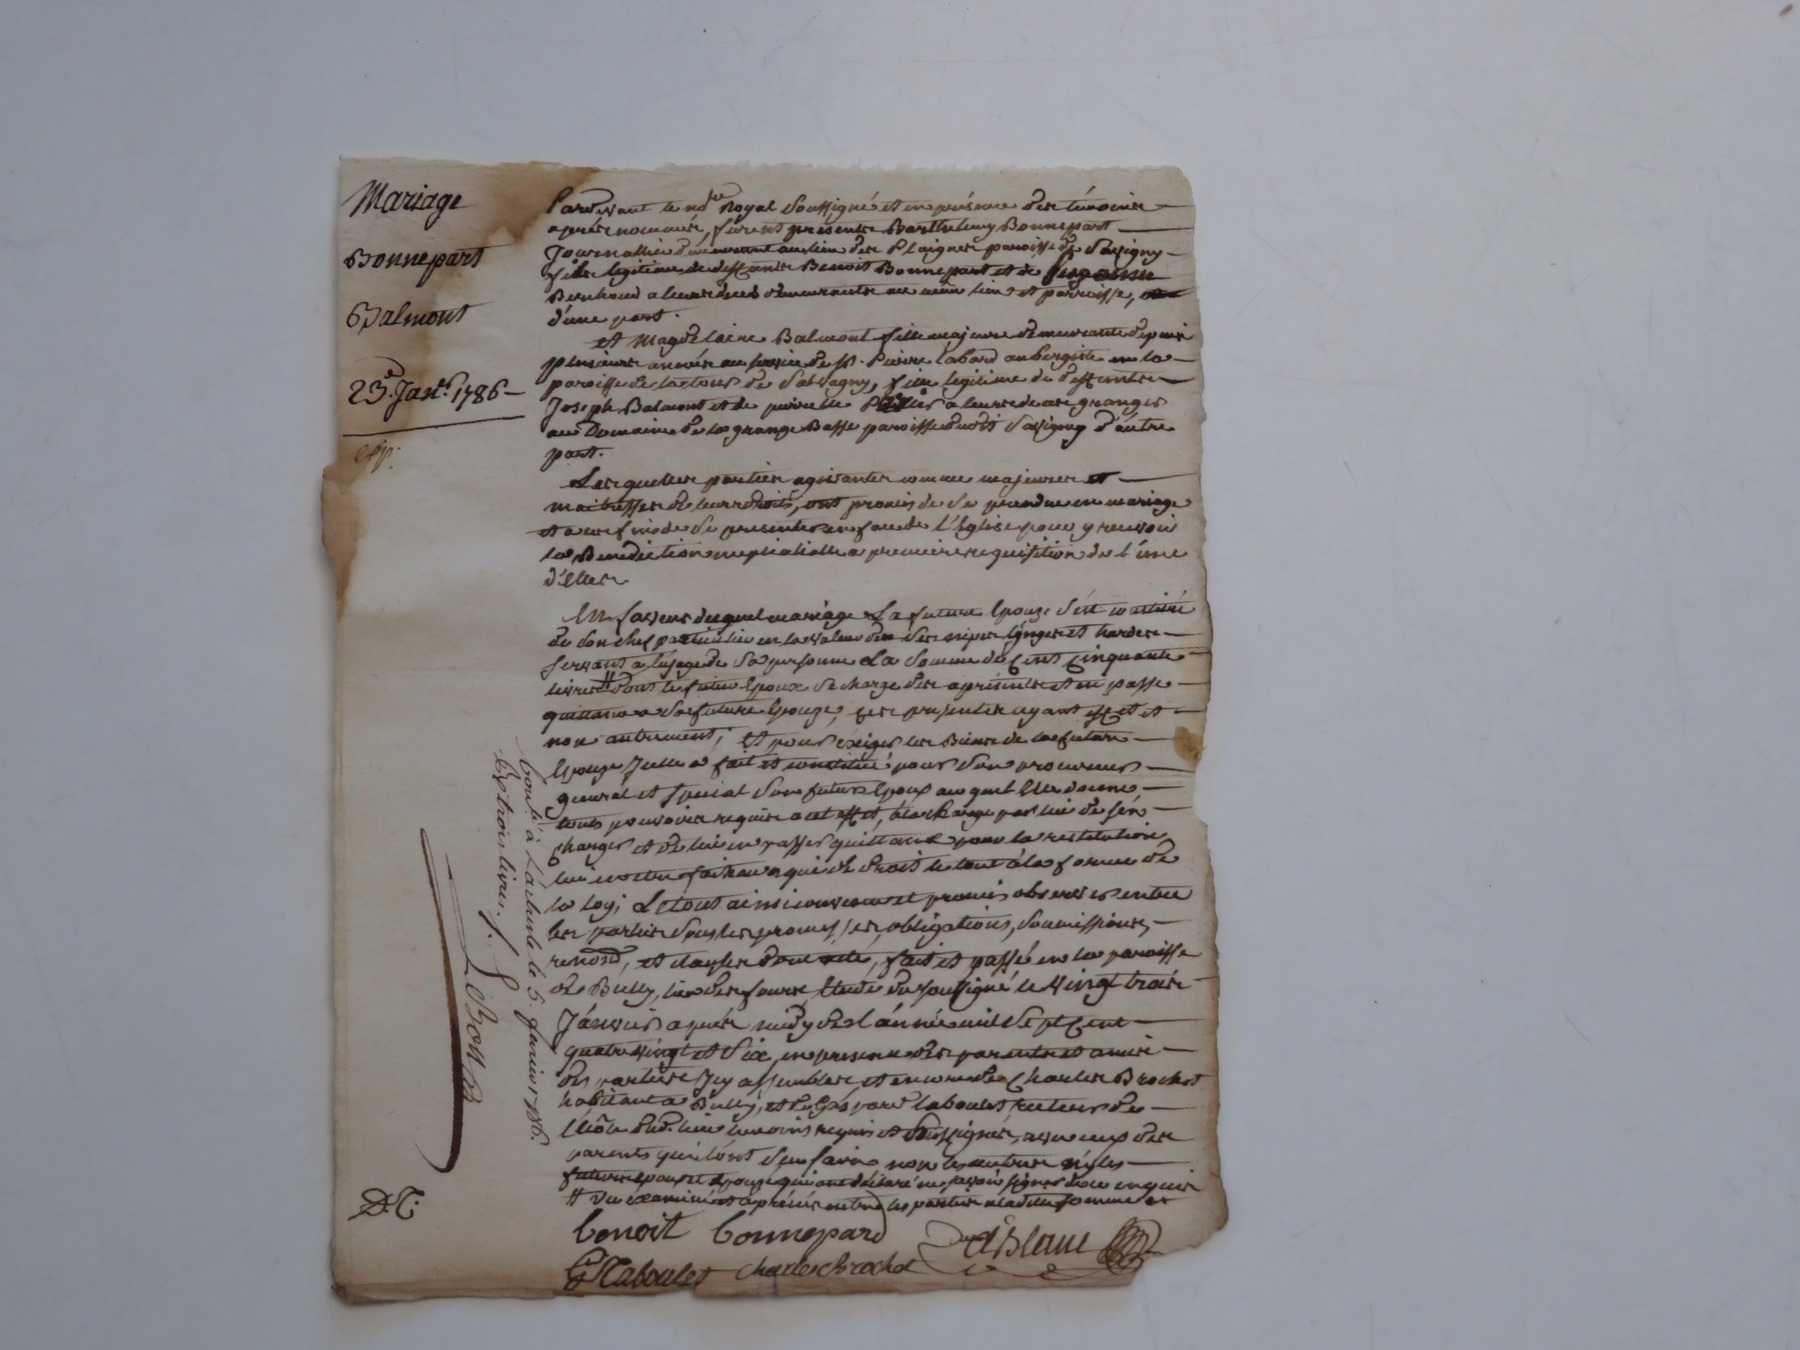 Mariage
Bonnepart
Balmont
23.e Janr. 1786
Pardevant le nore Royal soussigné et en présence des témoins
après nommés, furent présents Barthelemy Bonnepart
Journallier demeurant au lieu des Plaignes paroisse de Savigny
fils legitime de deffunts Benoit Bonnepart et de
demeurants au même lieu et parroisse,
d'une part.
et Magdelaine Balmont fille majeure demeurante depuis
plusieurs années au service de sr. Pierre Labard aubergiste en la
paroisse de la tour de Salvagny, fille legitime de deffunts
Joseph Balmont et de pierrette a leurs deces granger
au Domaine de la grange Basse paroisse dudit Savigny d'autre
part.
Lesquelles parties agissantes comme majeures et
maitresses de leurs droits, ont promis de se prendre en mariage
et a ces fins de se presenter en face de l'Eglise pour y recevoir
la Benediction nuptialle a premiere requisition de l'une
d'elles
En faveur duquel mariage La future Epouze s'est constitué
de son chef particulier en la valeur de ses nipes linges et hardes
servants a l'usage de sa personne La somme de Cent Cinquante
livres # dont le futur Epoux se charge des a présent et en passe
quittance a sa future Epouze, ces presentes ayant effet et
non autrement; et pour exiger les Biens de la future
Epouze Icelle a fait et constitué pour son procureur
general et special son futur Epoux auquel Elle donne
tous pouvoirs requis a cet effet, à la charge par lui de s'en
charger et de lui en passer quittance pour la restitution
lui en etre faite a qui de droit le tout à la forme de
la loy; Le tout ainsi convenu et promis observer entre
les parties sous les promesses, obligations, soumissions,
renond, et clauses dont acte, fait et passé en la paroisse
de Bully, lieu des fours, Etude du soussigné le vingt trois
Janvier après midy de l'année mil sept Cent
quatre vingt et six, en presence des parents et amis
des parties Icy assemblés et encore de Charles Brochot
habitant a Bully, et de Gaspard Laboulet recteur de
l'école dud. lieu temoins requis et soussignés, avec ceux des
parents qui l'ont sçeu faire non les autres ny les
futurs epoux et epouze qui ont déclaré ne savoir signer de ce enquis
# vu examinés et apréciés entre les parties a ladite somme
Benoit Bonnepard
G Laboulet Charles Brochot
Contlé à L'arbresle le 5 fevrier 1786.
trois livres.
D.C.